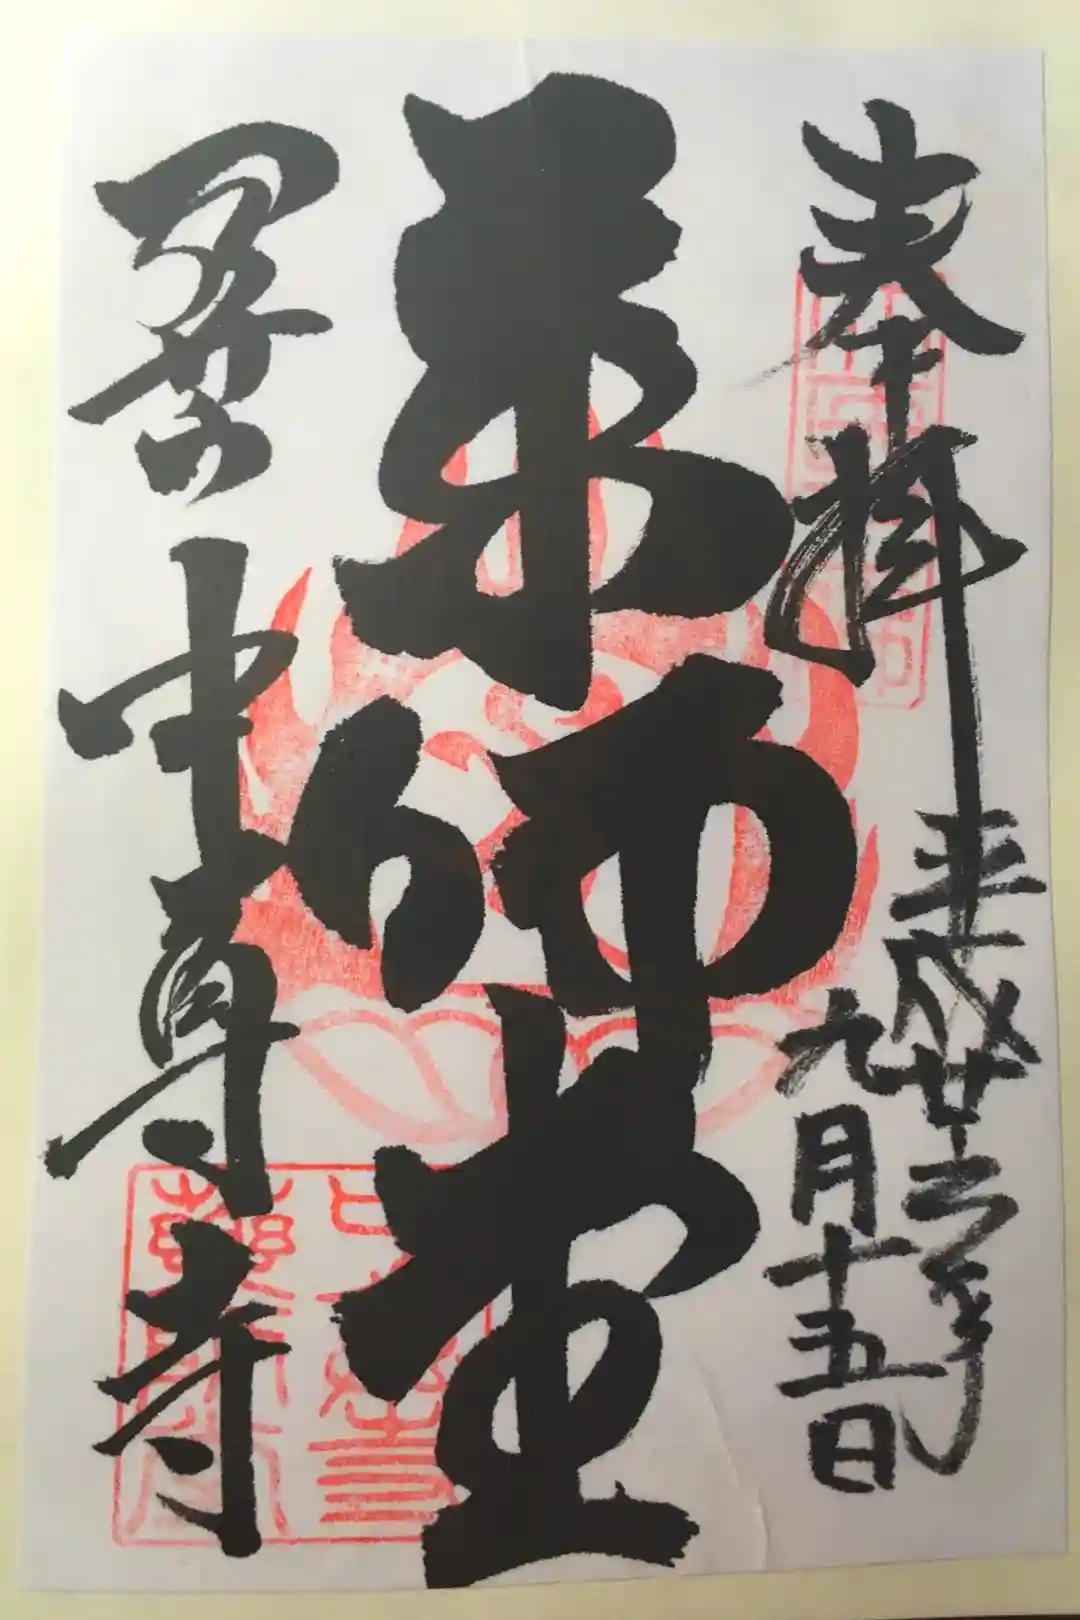 奉拝
平成廿三年
九月十五日
薬師堂
関山
中尊寺